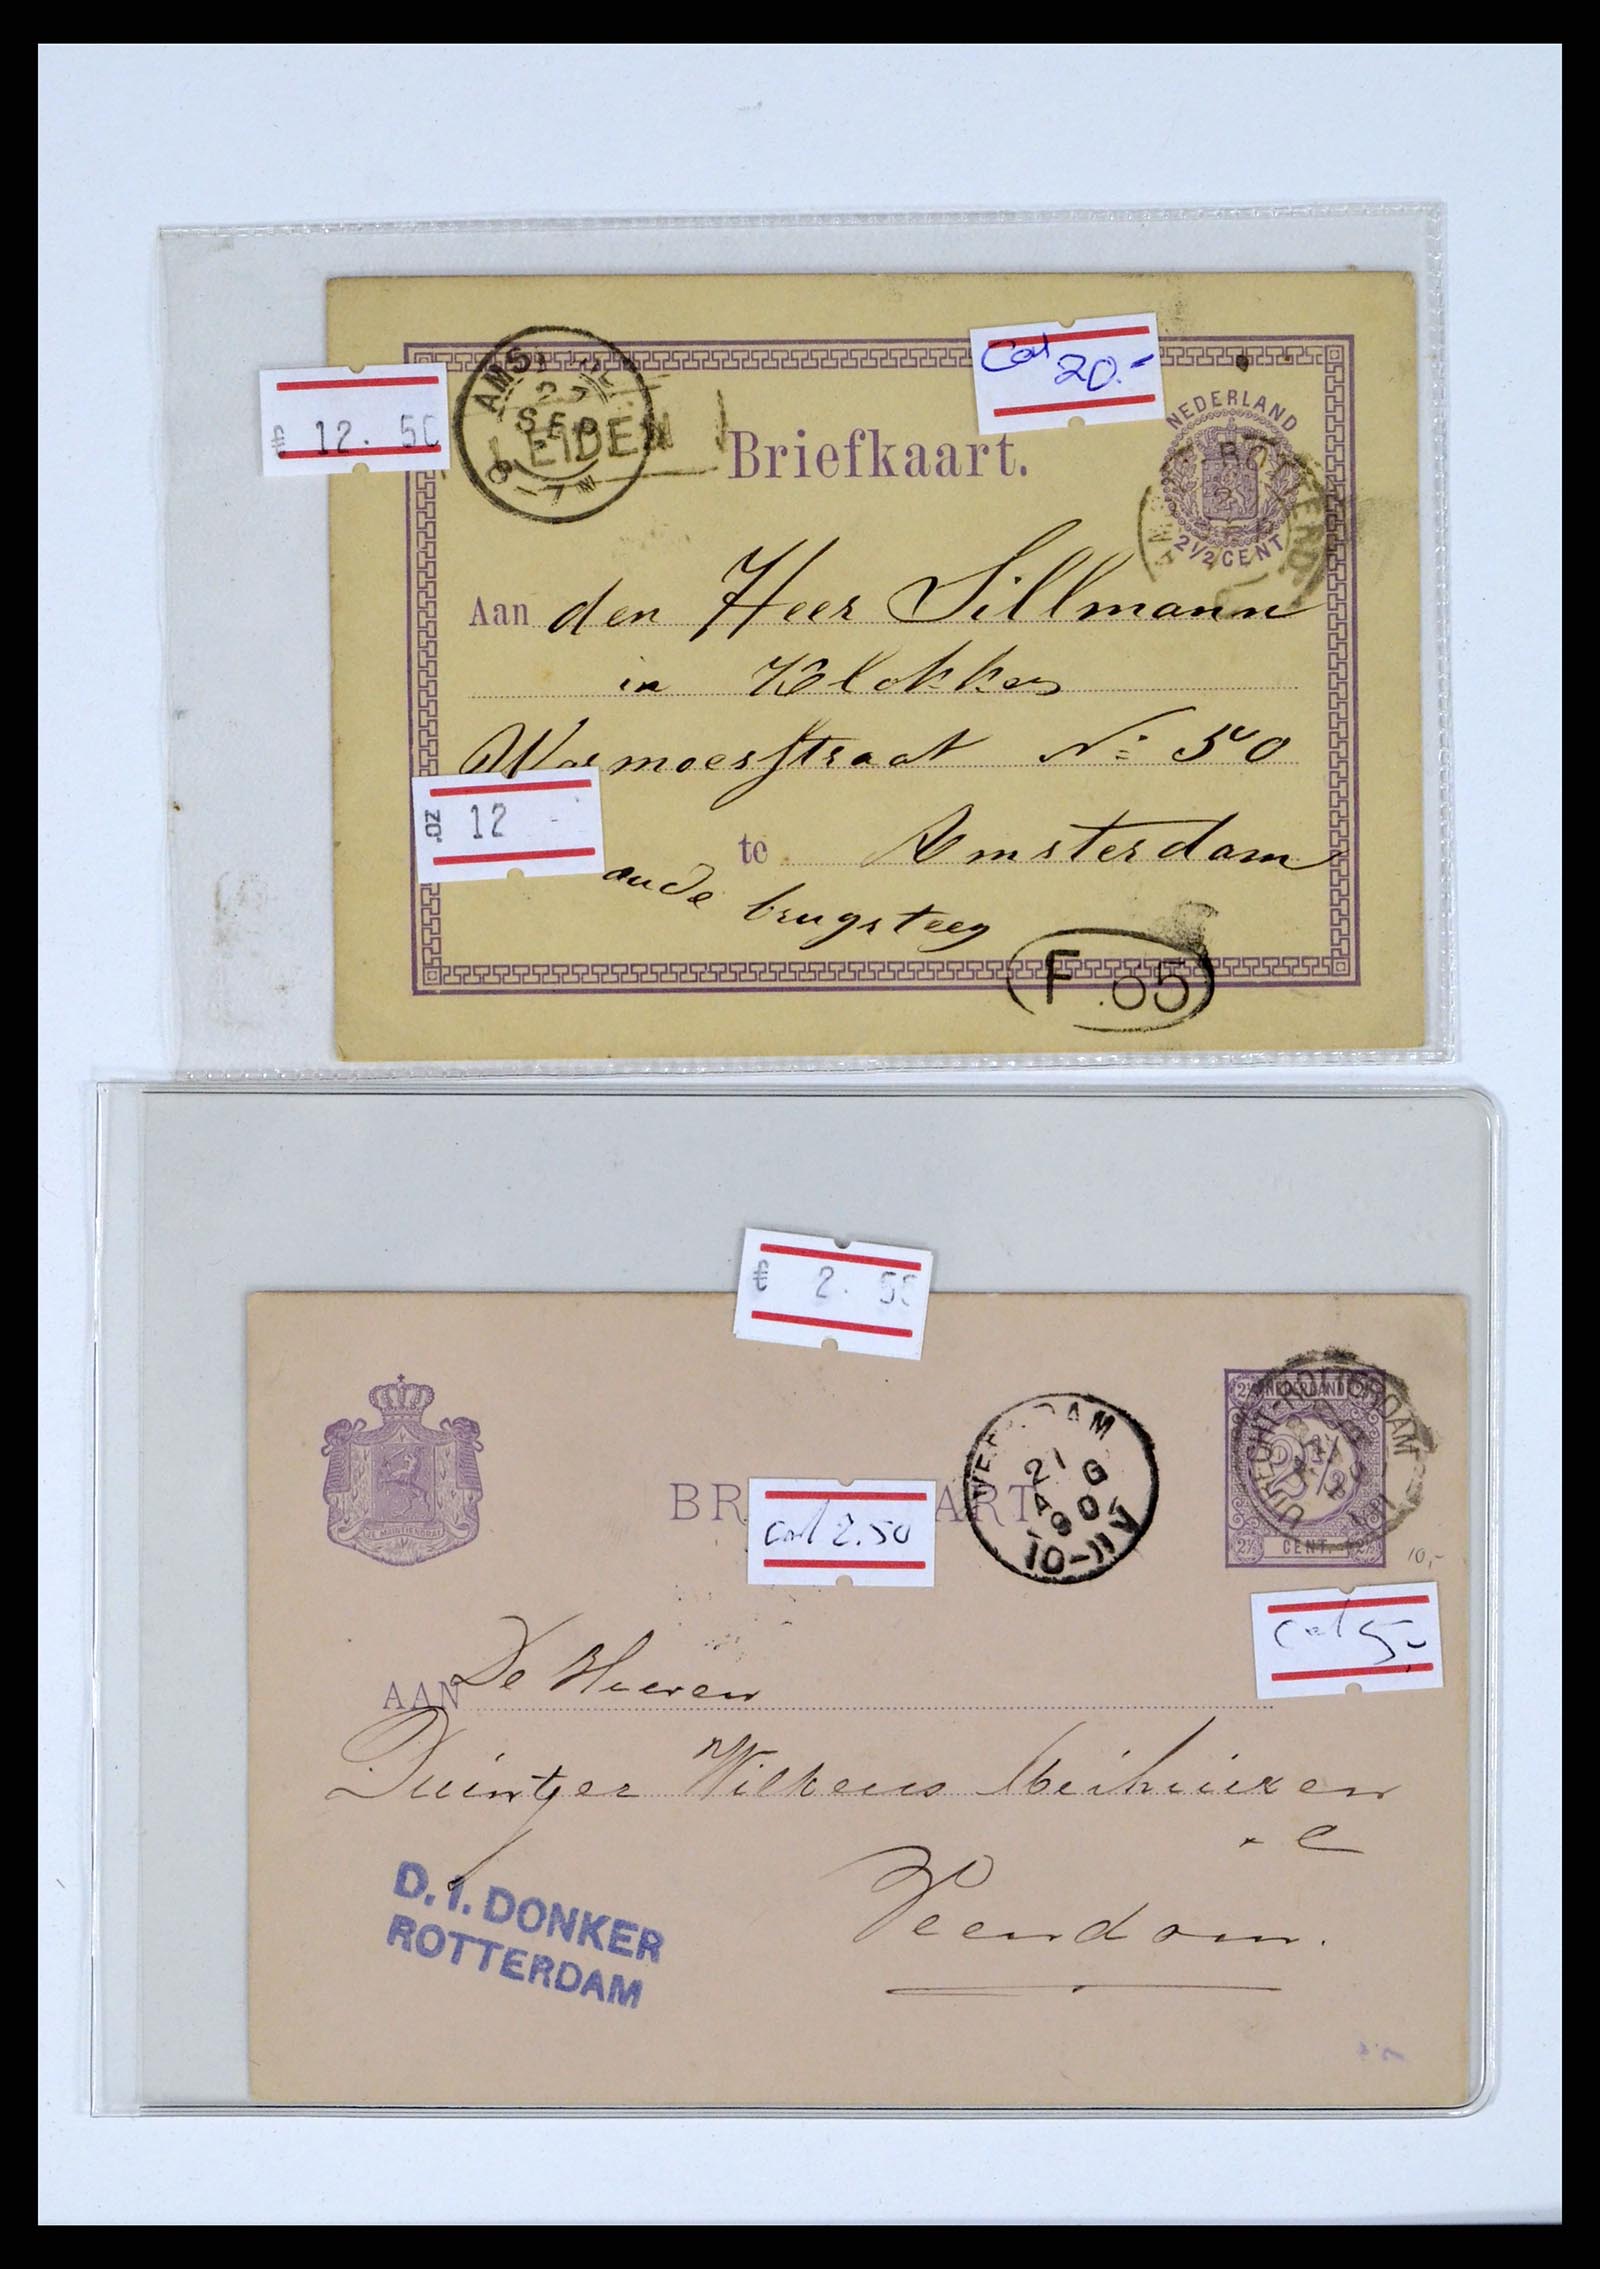 Cat 20.-
€ 12. 50
AMST
SEP
LEIDEN
Briefkaart.
NEDERLAND
2½ CENT
ROTTERD
Aan den Heer Sillmann
in Klokkes
Warmoesstraat No 50
.OZ 12 -
te Amsterdam
oude brugsteeg
F. 05
€ 2. 50
JE MAINTIENDRAI
BR ART
cat 2.50
VEENDAM
21 G
90
10-11V
NEDERLAND
2½
CENT.
UTRECHT-ROTTERDAM
10,-
cat 5,-
AAN De Heeren
Duintjer Wilkens Meihuizen
& C
Veendam.
D. I. DONKER
ROTTERDAM